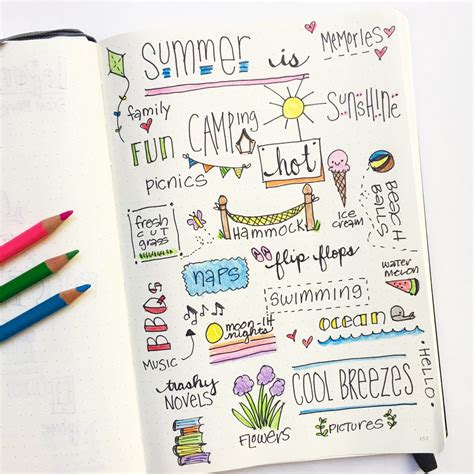 SUMMER is
MEMORIES
family
FUN
CAMPing
SUNSHINE
hot
picnics
fresh
CUT
grass
HAMMOCK
ICE
cream
BEACH
BALLS
NAPS
flip flops
water
melon
BBQs
SWIMMING
MUSIC
moon-lit
nights
ocean
trashy
NOVELS
FLOWERS
COOL BREEZES
PICTURES
HELLO